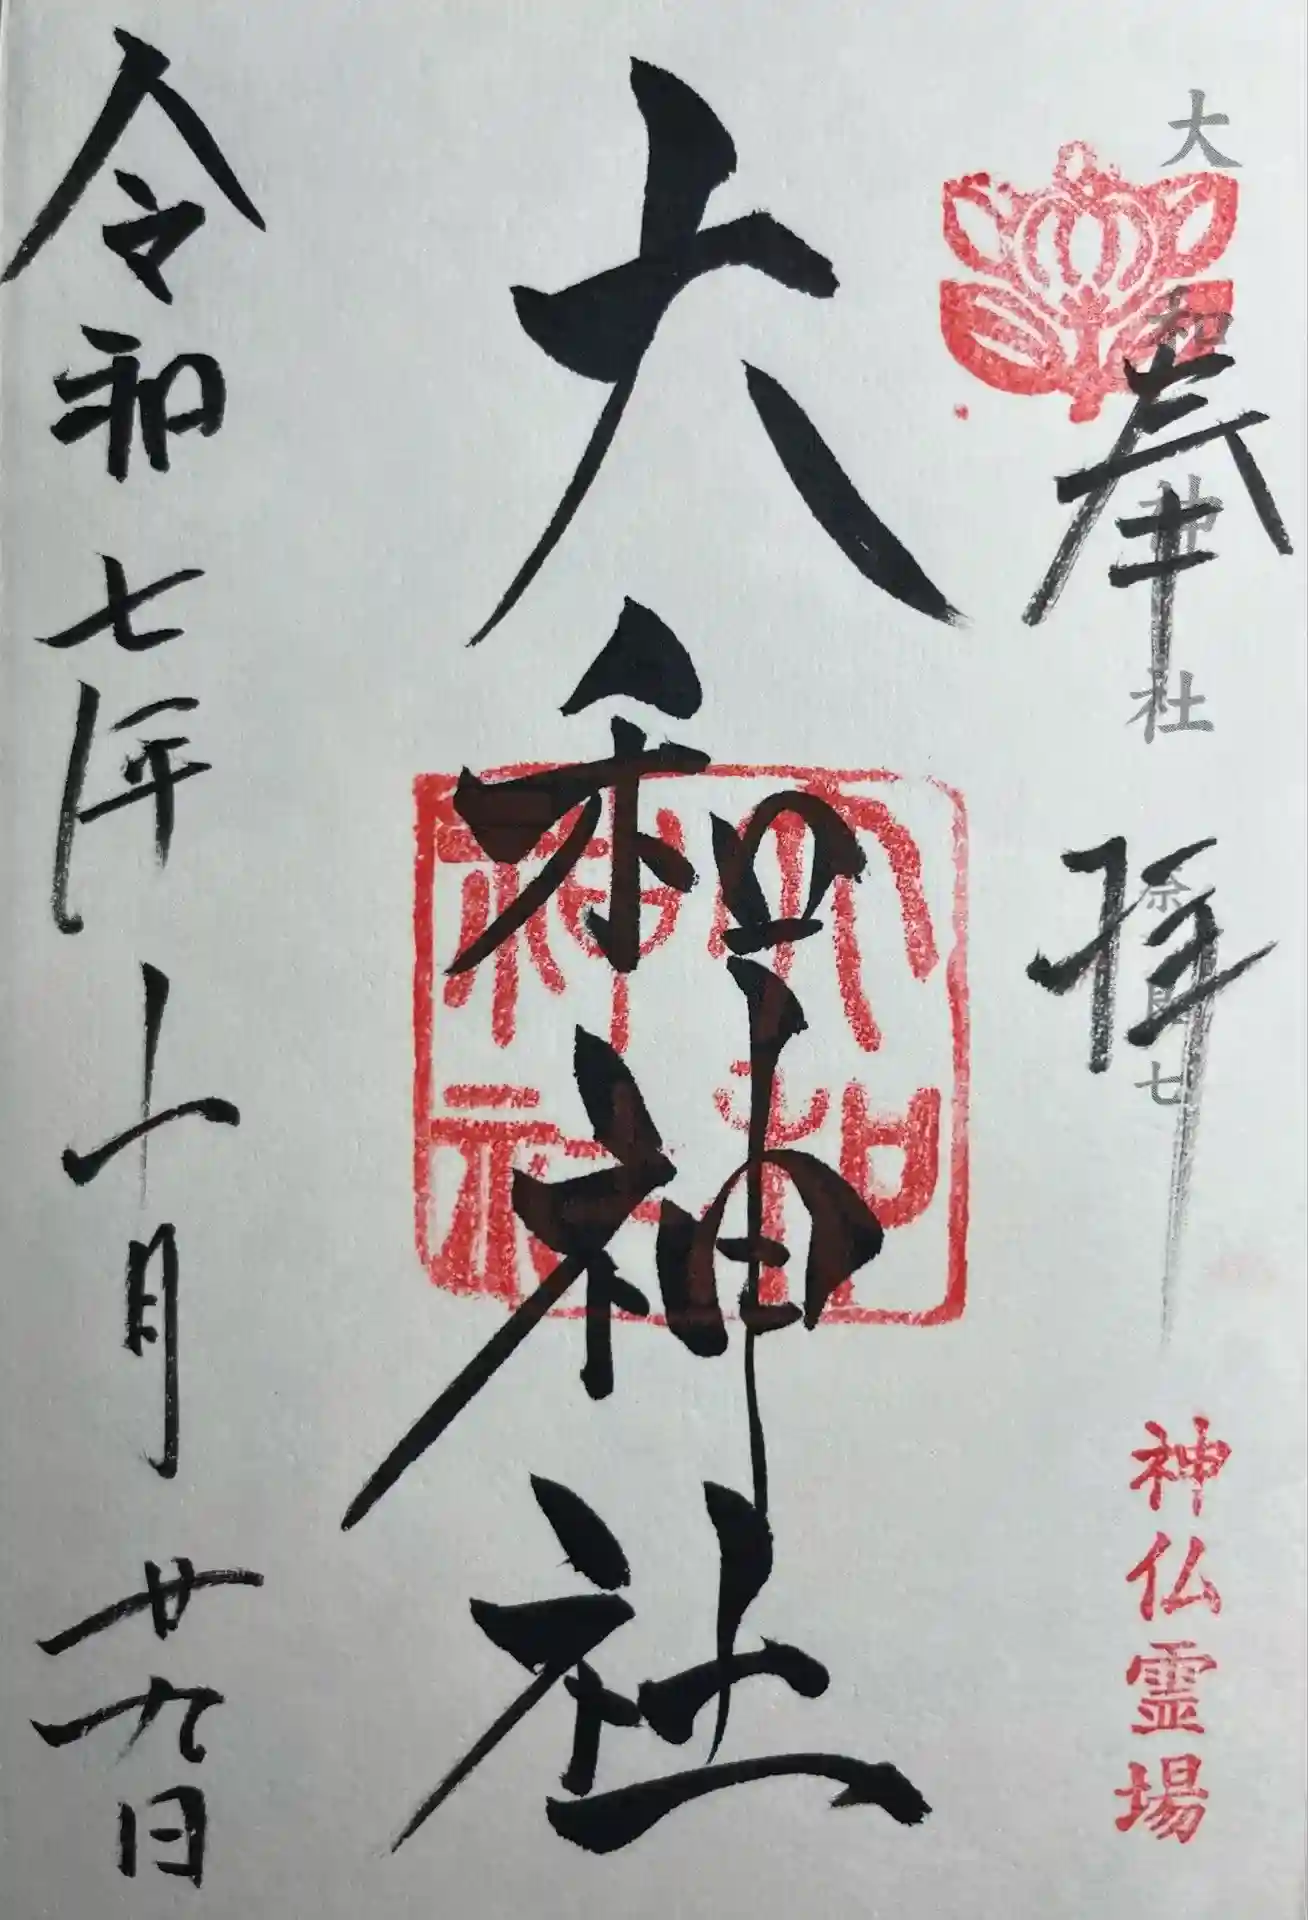 大和神社
奈良七
奉拝
神仏霊場
大和神社
大和神社
令和七年十月廿九日